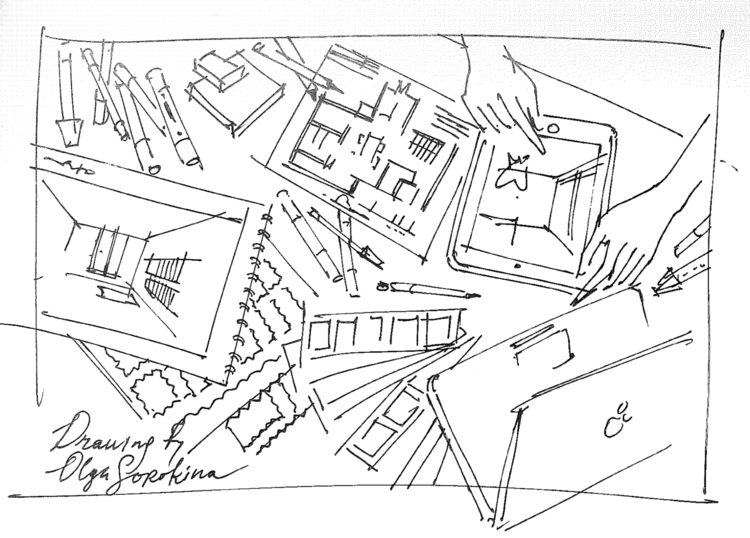 Drawing by
Olga Sorokina